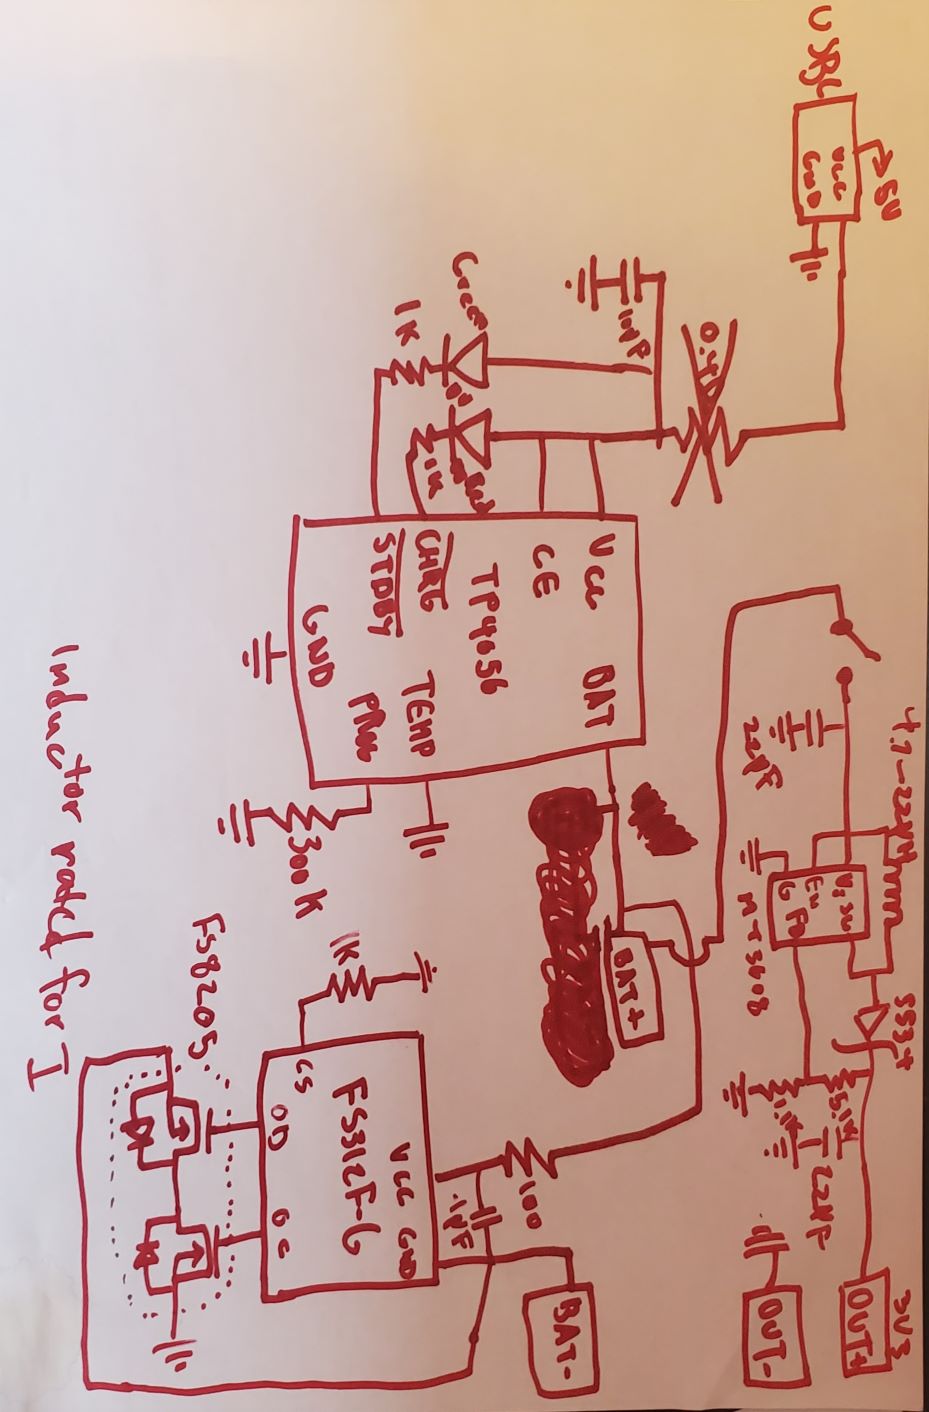 5V
USBC
VCC
GND
10µF
Green
Red
1K
1K
VCC
CE
TP4056
CHRG
STDBY
GND
BAT
TEMP
PROG
300K
4.7-22µH
SS34
3V3
OUT+
OUT-
SW
EN
G
FB
MT3608
22µF
5.1K
1.1K
22µF
BAT+
BAT-
100
.1µF
VCC GND
FS312F-G
CS
OD
OC
1K
FS8205
Inductor rated for I